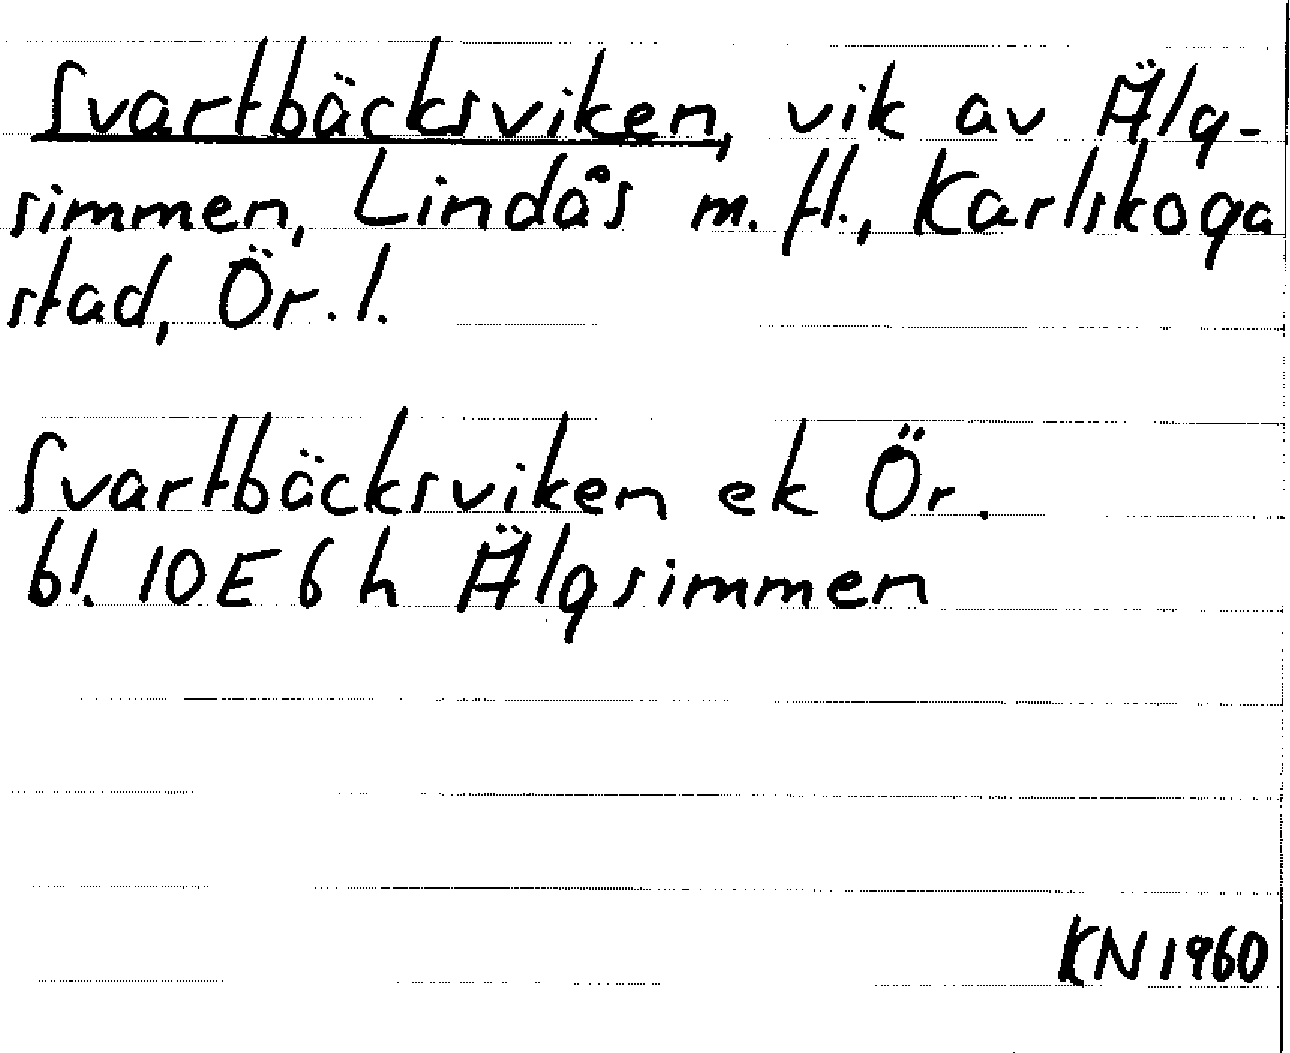 Svartbäcksviken, vik av Älg-
simmen, Lindås m. fl., Karlskoga
stad, Ör. l.
Svartbäcksviken ek Ör.
bl. 10E 6 h Älgsimmen
KN 1960